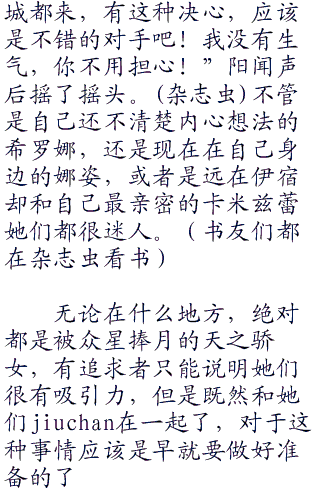 城都来，有这种决心，应该
是不错的对手吧！我没有生
气，你不用担心！”阳闻声
后摇了摇头。(杂志虫)不管
是自己还不清楚内心想法的
希罗娜，还是现在在自己身
边的娜姿，或者是远在伊宿
却和自己最亲密的卡米兹蕾
她们都很迷人。（书友们都
在杂志虫看书）
无论在什么地方，绝对
都是被众星捧月的天之骄
女，有追求者只能说明她们
很有吸引力，但是既然和她
们jiuchan在一起了，对于这
种事情应该是早就要做好准
备的了